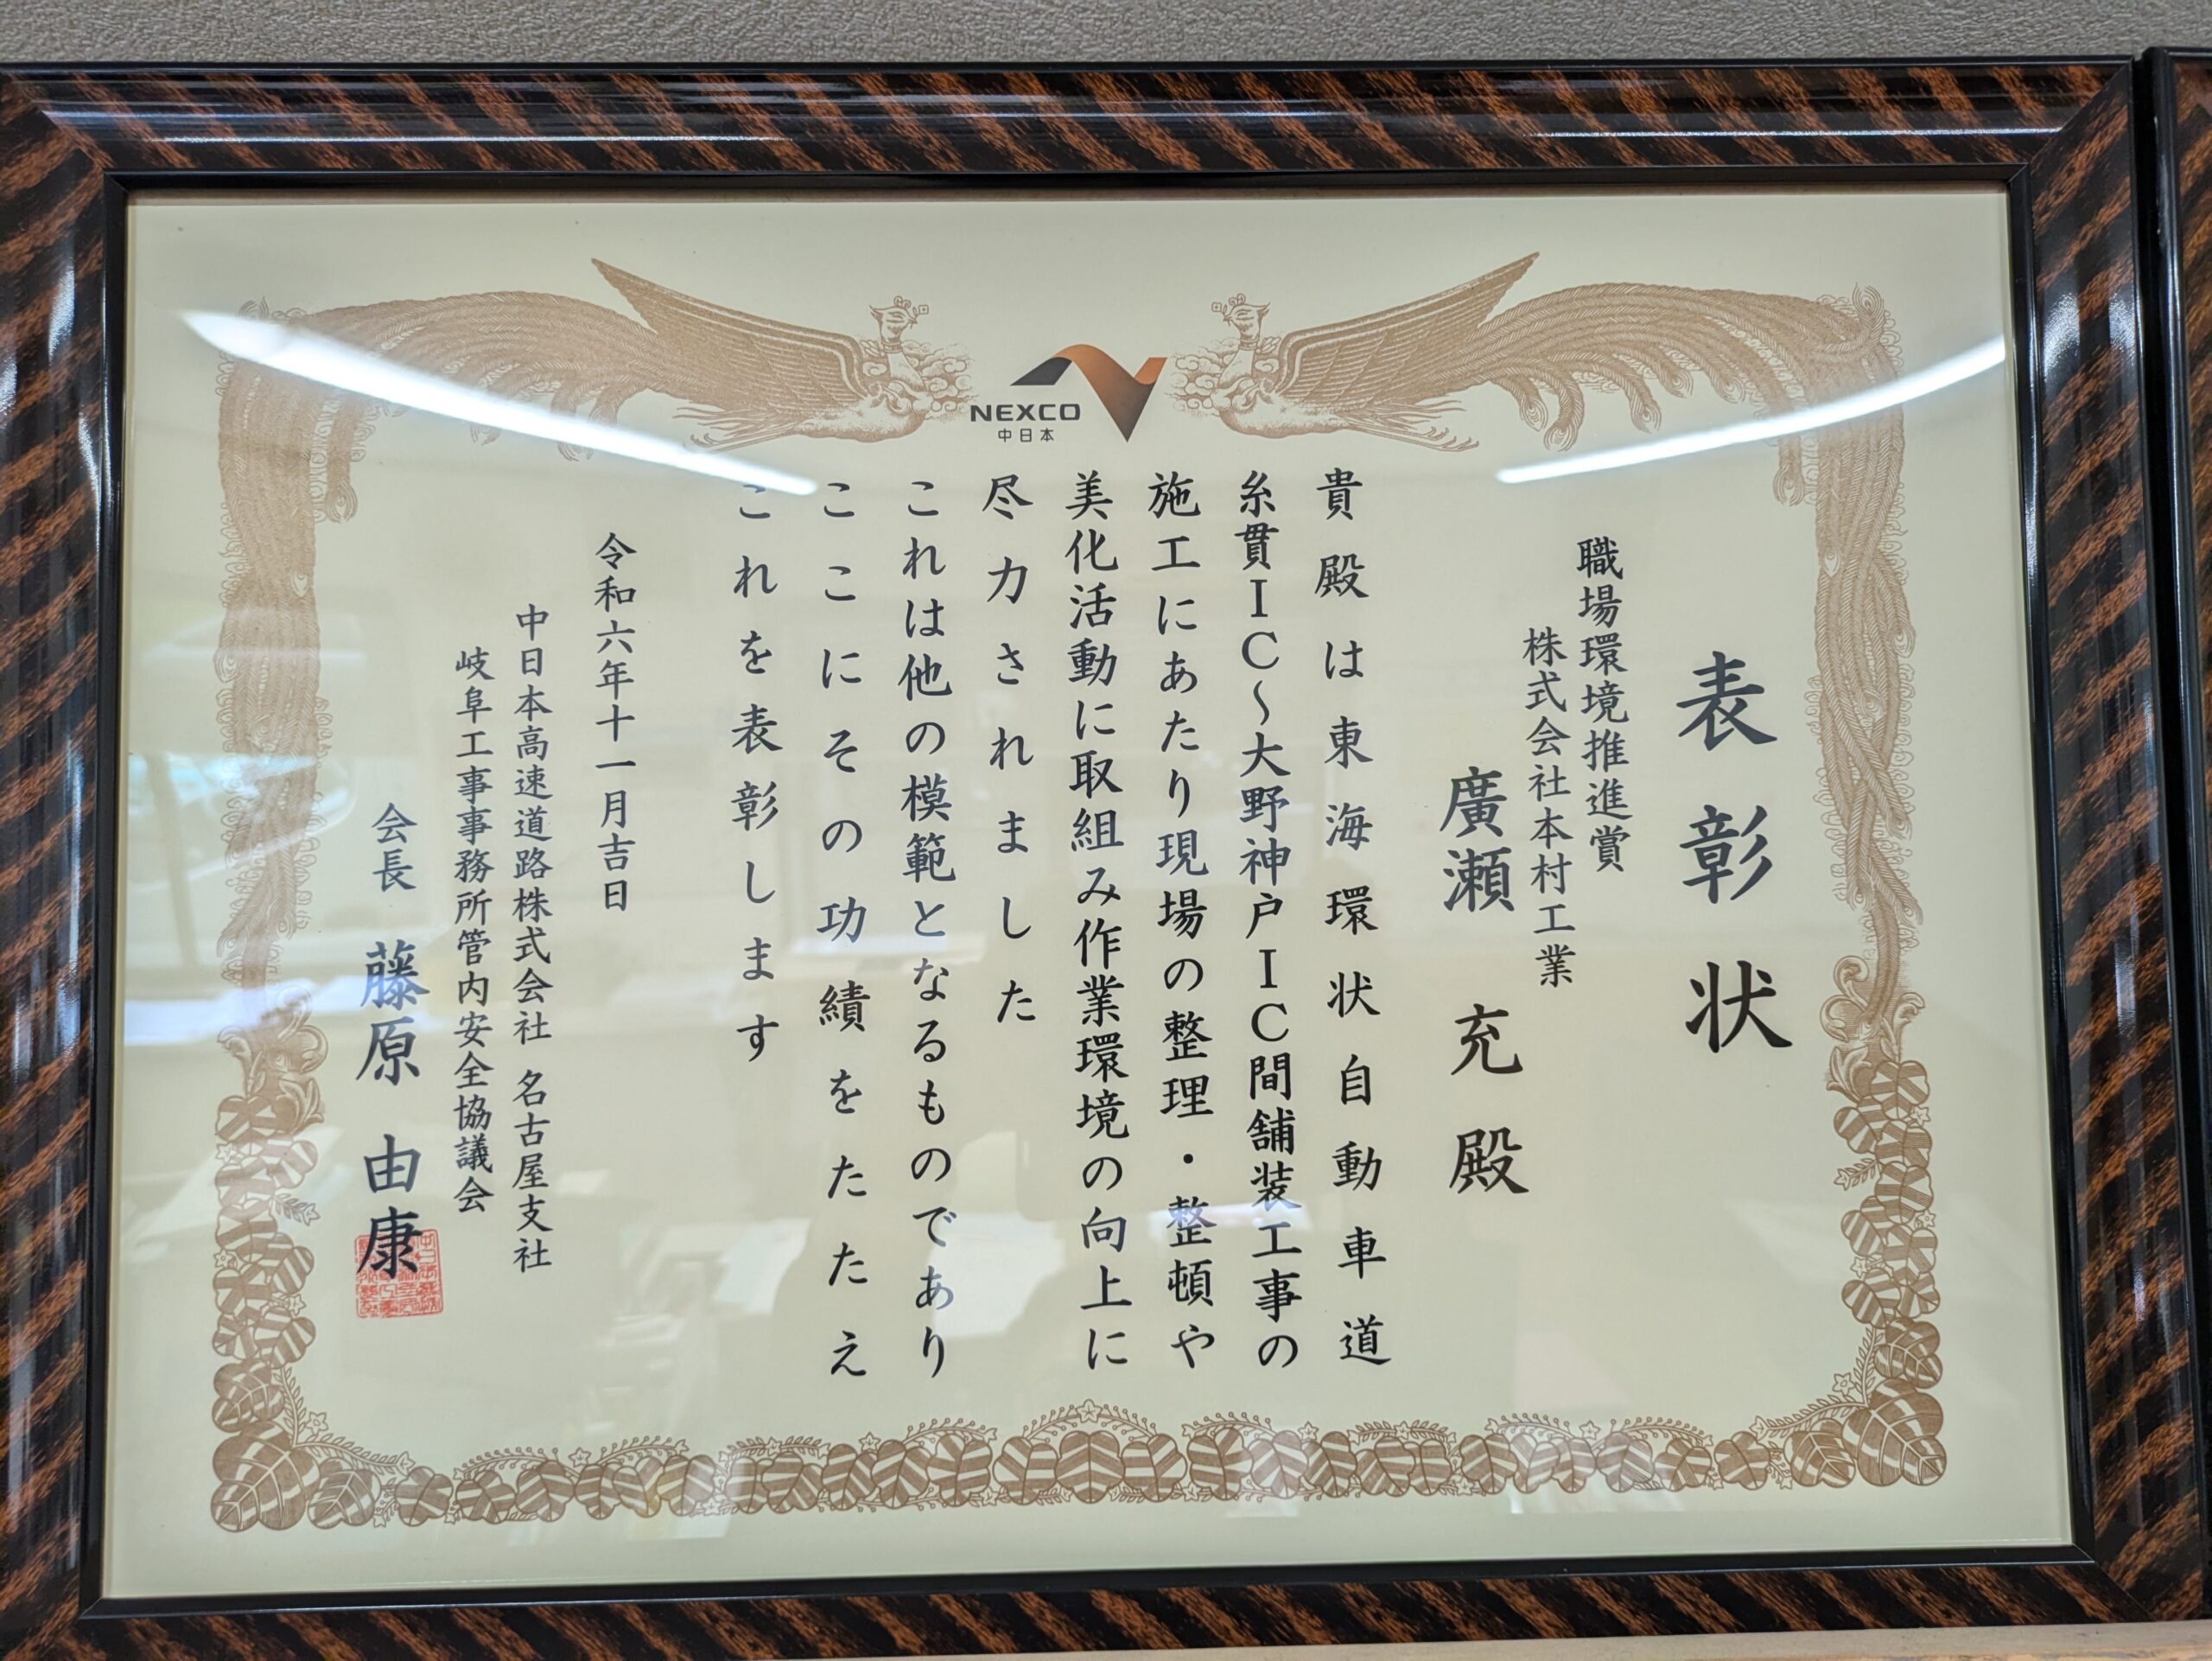 NEXCO
中日本
表彰状
職場環境推進賞
株式会社本村工業
廣瀬 充 殿
貴殿は東海環状自動車道
糸貫IC～大野神戸IC間舗装工事の
施工にあたり現場の整理・整頓や
美化活動に取組み作業環境の向上に
尽力されました
これは他の模範となるものであり
ここにその功績をたたえ
これを表彰します
令和六年十一月吉日
中日本高速道路株式会社 名古屋支社
岐阜工事事務所管内安全協議会
会長 藤原 由康